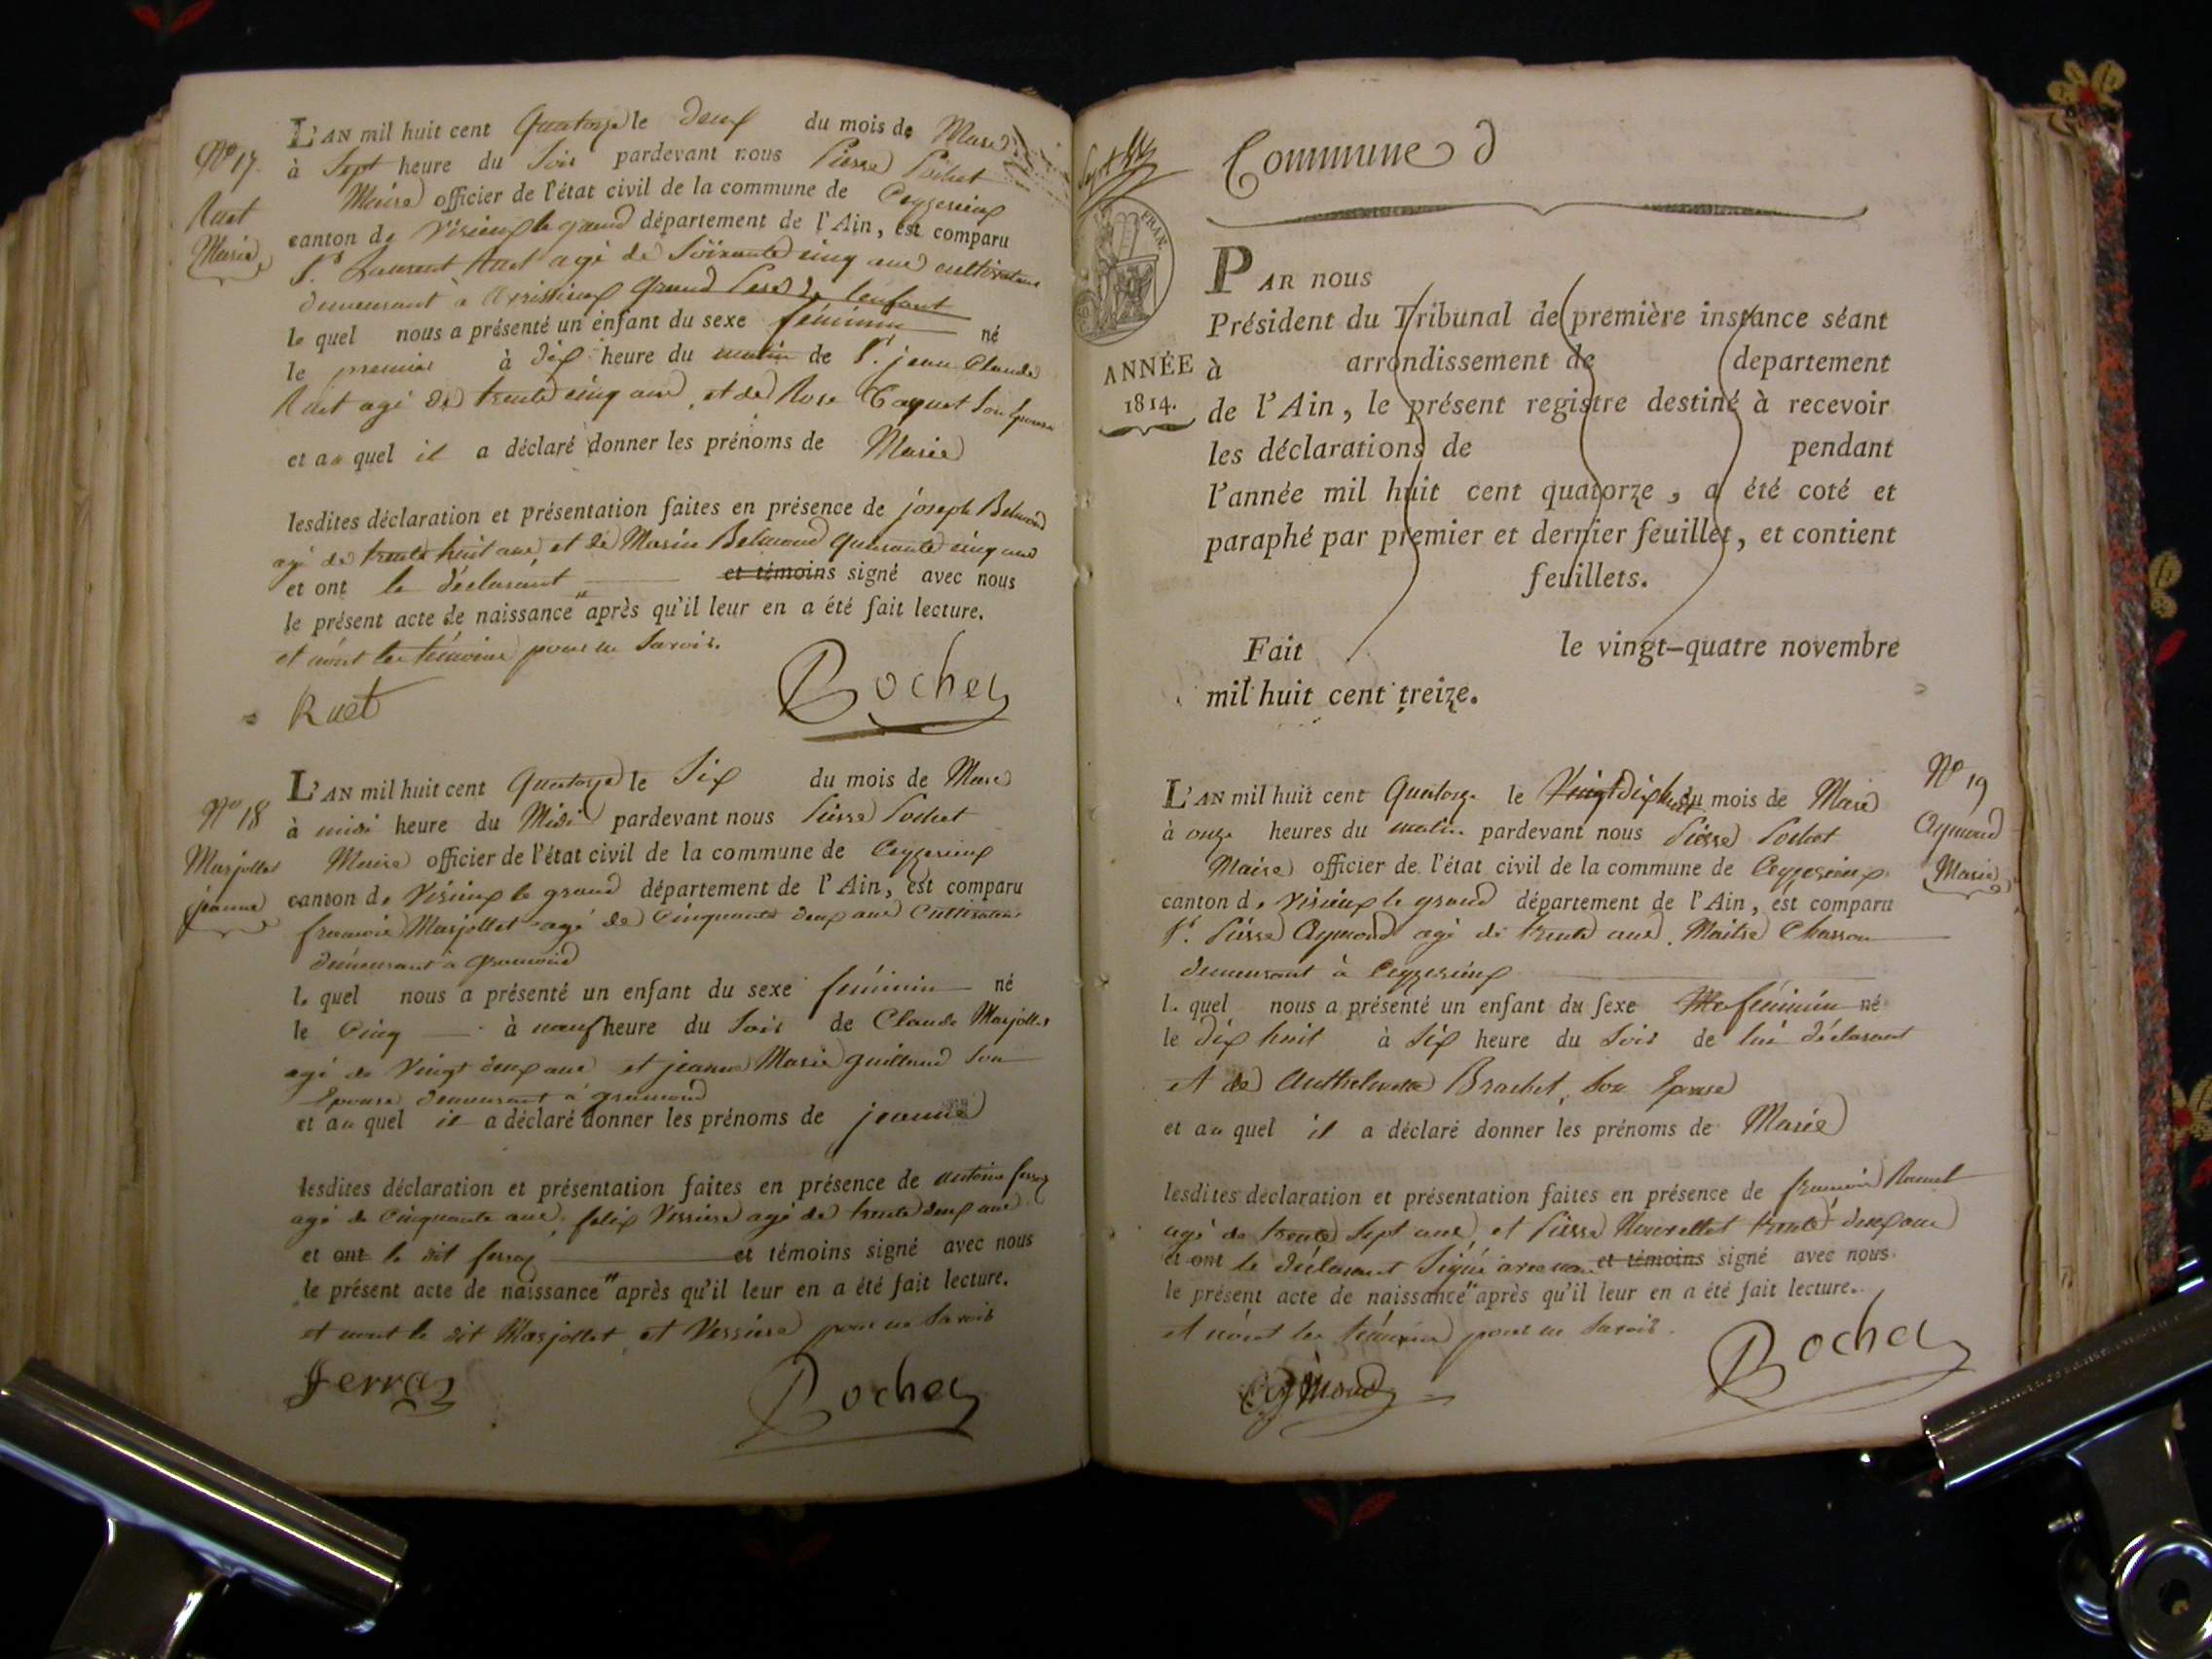 N° 17.
Ruet
Marie
L'AN mil huit cent Quatorze le deux du mois de Mars
à Sept heure du Soir pardevant nous Pierre Pochet
Maire officier de l'état civil de la commune de Ceyzerieux
canton de Virieux le grand département de l'Ain, est comparu
Sr. Laurent Ruet agé de Soixante cinq ans cultivateur
demeurant à Avrissieux Grand Pere de l'enfant
le quel nous a présenté un enfant du sexe féminin né
le premier à dix heure du matin de Sr. jean Claude
Ruet agé de trente cinq ans, et de Rose Caquet Son Epouse
et au quel il a déclaré donner les prénoms de Marie
lesdites déclaration et présentation faites en présence de joseph Belmond
agé de trente huit ans et de Marin Belmond Quarante cinq ans
et ont le déclarant et témoins signé avec nous
le présent acte de naissance " après qu'il leur en a été fait lecture.
et n'ont les témoins pour ne Savoir.
Ruet
Pochet
N° 18
Marjollet
jeanne
L'AN mil huit cent Quatorze le Six du mois de Mars
à midi heure du Midi pardevant nous Pierre Pochet
Maire officier de l'état civil de la commune de Ceyzerieux
canton de Virieux le grand département de l'Ain, est comparu
francois Marjollet agé de Cinquante deux ans Cultivateur
demeurant à Gramond
le quel nous a présenté un enfant du sexe féminin né
le Cinq à neuf heure du Soir de Claude Marjollet
agé de Vingt deux ans et jeanne Marie guilland Son
Epouse demeurant à gramond
et au quel il a déclaré donner les prénoms de jeanne
lesdites déclaration et présentation faites en présence de antoine ferraz
agé de Cinquante ans, felix Verriere agé de trente deux ans
et ont le dit ferraz et témoins signé avec nous
le présent acte de naissance " après qu'il leur en a été fait lecture.
et n'ont le dit Marjollet, et Verriere pour ne Savoir
Ferraz
Pochet
FRAN.
ANNÉE
1814.
Commune d
PAR nous
Président du Tribunal de première instance séant
à arrondissement de departement
de l'Ain, le présent registre destiné à recevoir
les déclarations de pendant
l'année mil huit cent quatorze, a été coté et
paraphé par premier et dernier feuillet, et contient
feuillets.
Fait le vingt-quatre novembre
mil huit cent treize.
N° 19
Aymond
Marie
L'AN mil huit cent Quatorze le Vingt dix huit du mois de Mars
à onze heures du matin pardevant nous Pierre Pochet
Maire officier de l'état civil de la commune de Ceyzerieux
canton de Virieux le grand département de l'Ain, est comparu
Sr. Pierre Aymond agé de trente ans. Maitre Charron
demeurant à Ceyzerieux
le quel nous a présenté un enfant du sexe féminin né
le dix huit à Six heure du Soir de lui déclarant
et de Anthelmette Brachet, Son Epouse
et au quel il a déclaré donner les prénoms de Marie
lesdites déclaration et présentation faites en présence de francois
agé de trente Sept ans, et Pierre trente deux ans
et ont le déclarant Signé avec nous et témoins signé avec nous
le présent acte de naissance " après qu'il leur en a été fait lecture.
et n'ont les témoins pour ne Savoir.
Aymond
Pochet